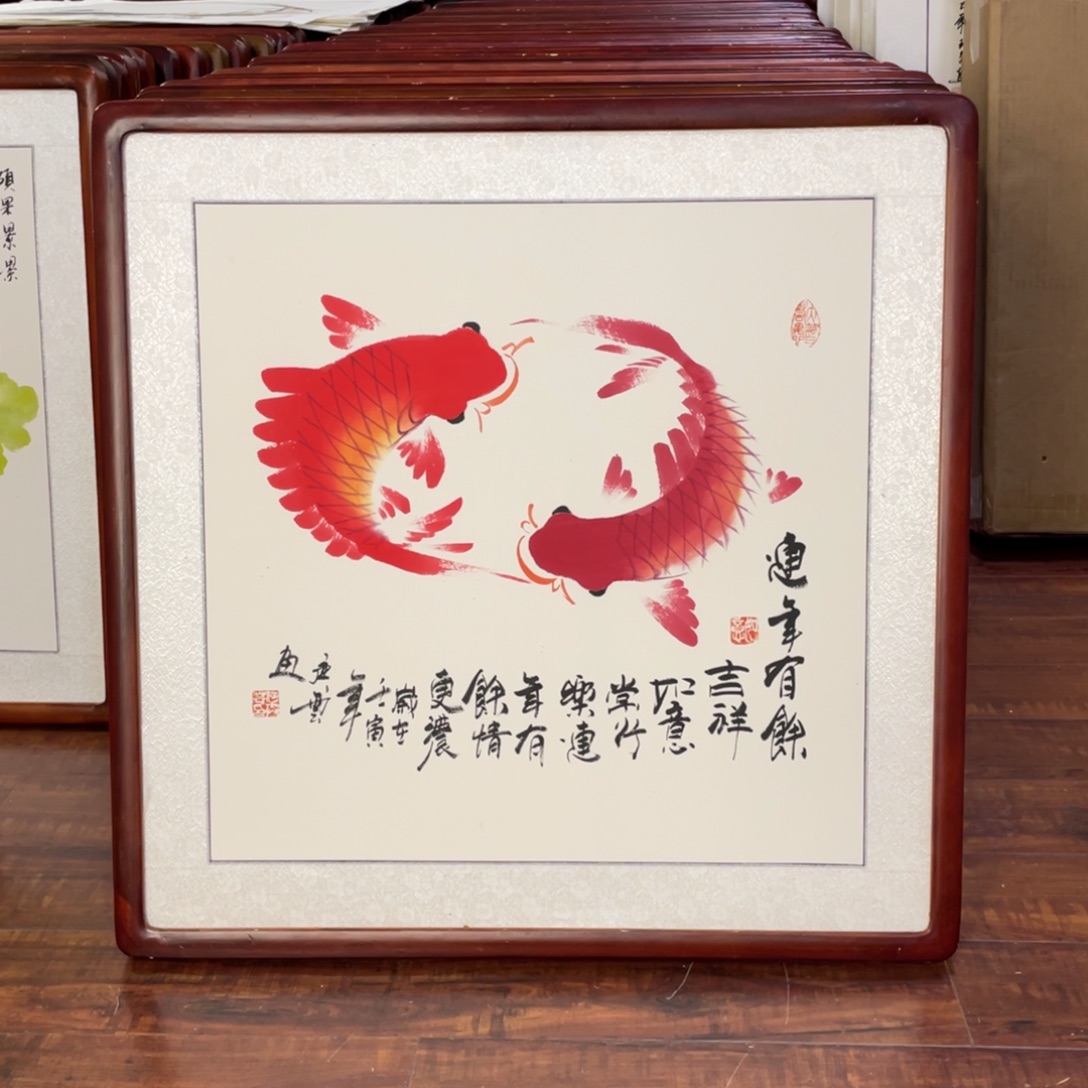 連年有餘
吉祥
如意
常
樂連
年有
餘情
更濃
歲在
壬寅
年
雲
画
碩果累累